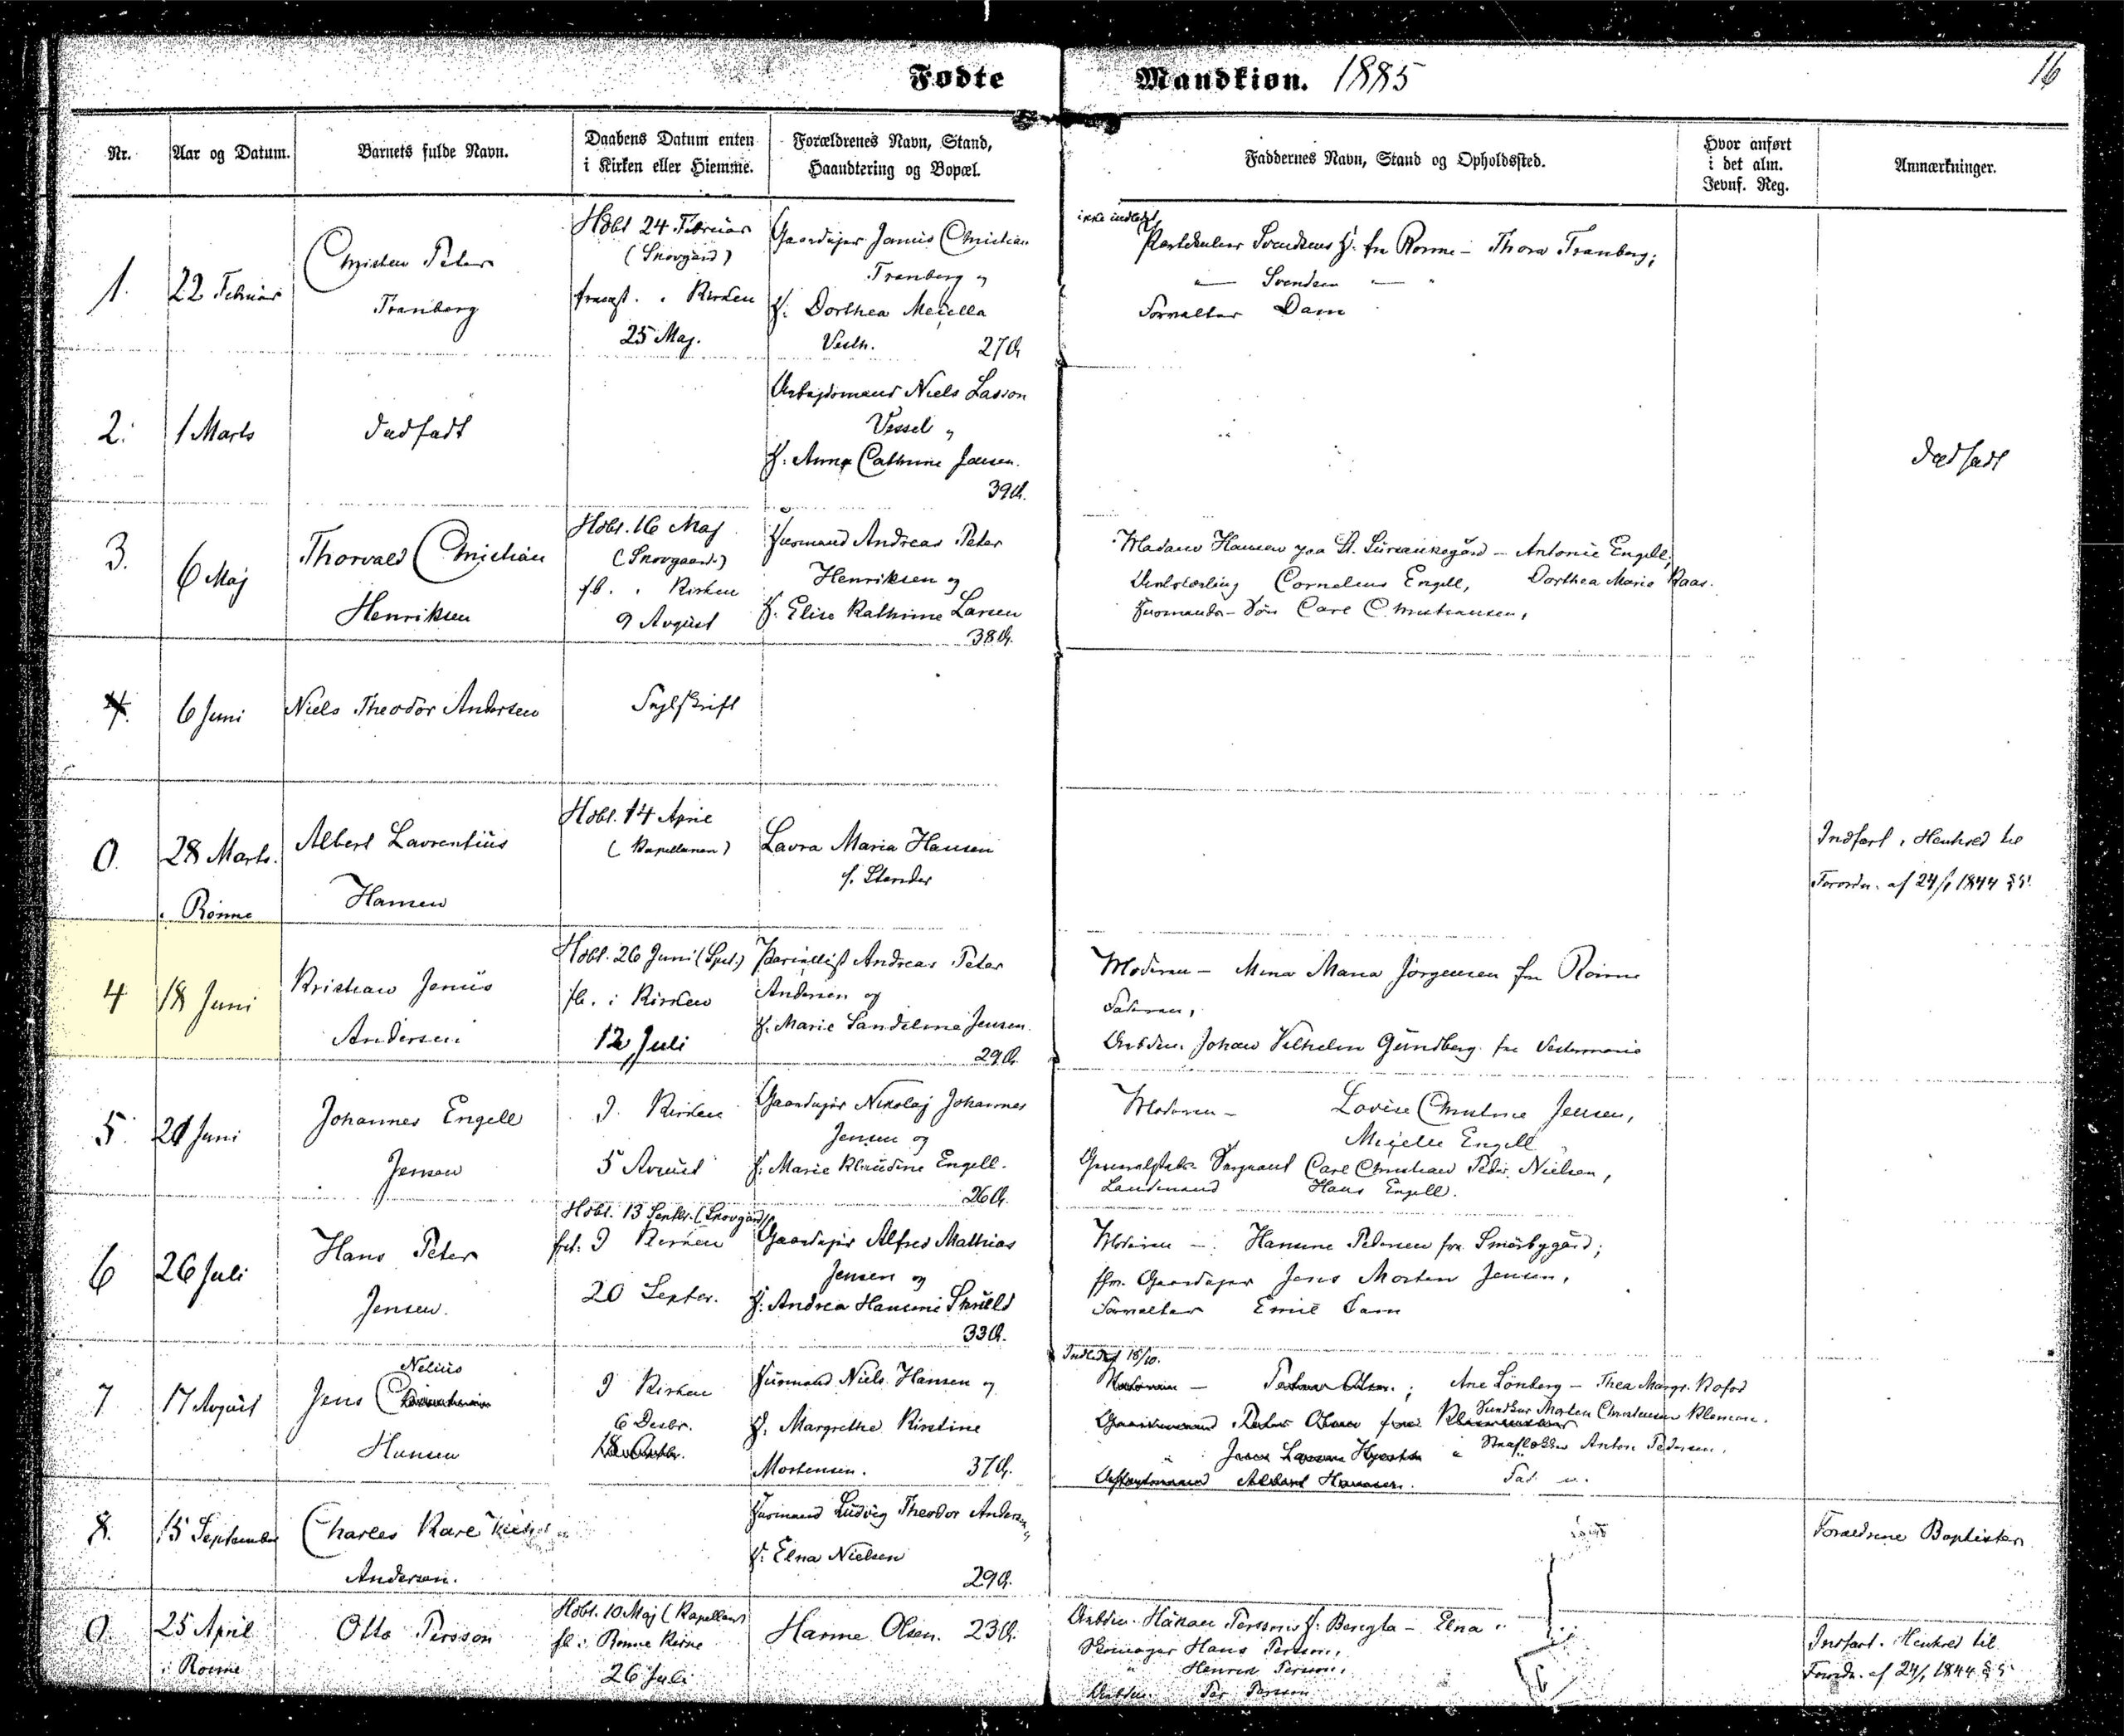 Fødte
Mandkiøn. 1885
16
Nr.
Aar og Datum.
Barnets fulde Navn.
Daabens Datum enten
i Kirken eller Hiemme.
Forældrenes Navn, Stand,
Haandtering og Bopæl.
Faddernes Navn, Stand og Opholdssted.
Hvor anført
i det alm.
Jevnf. Reg.
Anmærkninger.
1.
22 Februar
Christen Peter
Tranberg
Hdbt 24 Februar
(Skovgård)
fremst. i Kirken
25 Maj.
Gaardejer Janus Christian
Tranberg og
H. Dorthea
Vesth. 27 A
ikke indledet
Svendsens H. fra Rønne – Thora Tranberg;
— Svendsen — "
Forvalter Dam
2.
1 Marts
dødfødt
Arbejdsmand Niels Lasson
Vessel og
H. Anna Cathrine Jensen.
39 A.
dødfødt
3.
6 Maj
Thorvald Christian
Henriksen
Hdbt. 16 Maj
(Skovgaard)
fb. i Kirken
9 August
Husmand Andreas Peter
Henriksen og
H. Elise Kathrine Larsen
38 A.
Madam Hansen paa St. – Antonie Engell,
Cornelius Engell, Dorthea Marie Kaas.
Husmands-Søn Carl Christiansen,
4.
6 Juni
Niels Theodor Andersen
Fejlskrift
0.
28 Marts.
i Rønne
Albert Laurentius
Hansen
Hdbt. 14 April
(Kapellanen)
Laura Maria Hansen
f. Stender
Indført i Henhold til
Forordn. af 24/1 1844 § 5.
4
18 Juni
Kristian Janus
Andersen
Hdbt. 26 Juni
fb. i Kirken
12 Juli
Andreas Peter
Andersen og
H. Marie Sandeline Jensen.
29 A.
Moderen – Mina Maria Jørgensen fra Rønne
Faderen,
Arbdm. Johan Vilhelm Gundberg fra Vestermarie
5.
21 Juni
Johannes Engell
Jensen
I Kirken
5 August
Gaardejer Nikolaj Johannes
Jensen og
H. Marie Klaudine Engell.
26 A.
Moderen – Lovise Christine Jensen,
Engell
Sergeant Carl Christian Peder Nielsen,
Landmand Hans Engell.
6
26 Juli
Hans Peter
Jensen.
Hdbt. 13 Septbr. (Skovgård)
fst. I Kirken
20 Septbr.
Gaardejer Alfred Mathias
Jensen og
H. Andrea Hansine Skueld
33 A.
Moderen – Hansine Pedersen fra Smørbygård;
fhv. Gaardejer Jens Morten Jensen,
Forvalter Emil Dam
7
17 August
Nelius
Jens
Hansen
I Kirken
6 Decbr.
Husmand Niels Hansen og
H. Margrethe Kirstine
Mortensen. 37 A.
Indledet 18/10.
Moderen – Ane Lønberg – Thea Margr. Kofod
Morten Christensen Klemen.
Anton Pedersen.
8.
15 September
Charles Kare
Andersen.
Husmand Ludvig Theodor Andersen
H. Elna Nielsen
29 A.
Forældrene Baptister
0.
25 April
i Rønne
Otto Persson
Hdbt. 10 Maj (Kapellan)
fb. i Rønne Kirke
26 Juli
Hanne Olsen. 23 A.
Arbdm. Håkan Perssons H. Bengta – Elna "
Skomager Hans Persson,
" Henrik Persson,
Arbdm. Per Persson
Indført i Henhold til
Forordn. af 24/1 1844 § 5